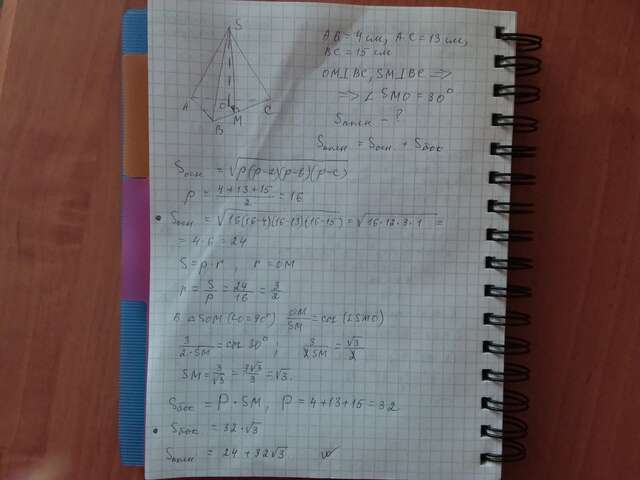 S
A
O
C
B
M
AB = 4 см, AC = 13 см,
BC = 15 см
OM⊥BC, SM⊥BC ⇒
⇒ ∠SMO = 30°
Sполн - ?
Sполн = Sосн. + Sбок
Sосн = √p(p-a)(p-b)(p-c)
p = 4+13+15/2 = 16
• Sосн = √16(16-4)(16-13)(16-15) = √16·12·3·1 =
= 4·6 = 24
S = p·r, r = OM
r = S/p = 24/16 = 3/2
В △SOM (∠O=90°) OM/SM = cos(∠SMO)
3/2·SM = cos 30°, 3/2SM = √3/2
SM = 3/√3 = 3√3/3 = √3.
Sбок = P·SM, P = 4+13+15 = 32
• Sбок = 32·√3
Sполн = 24+32√3